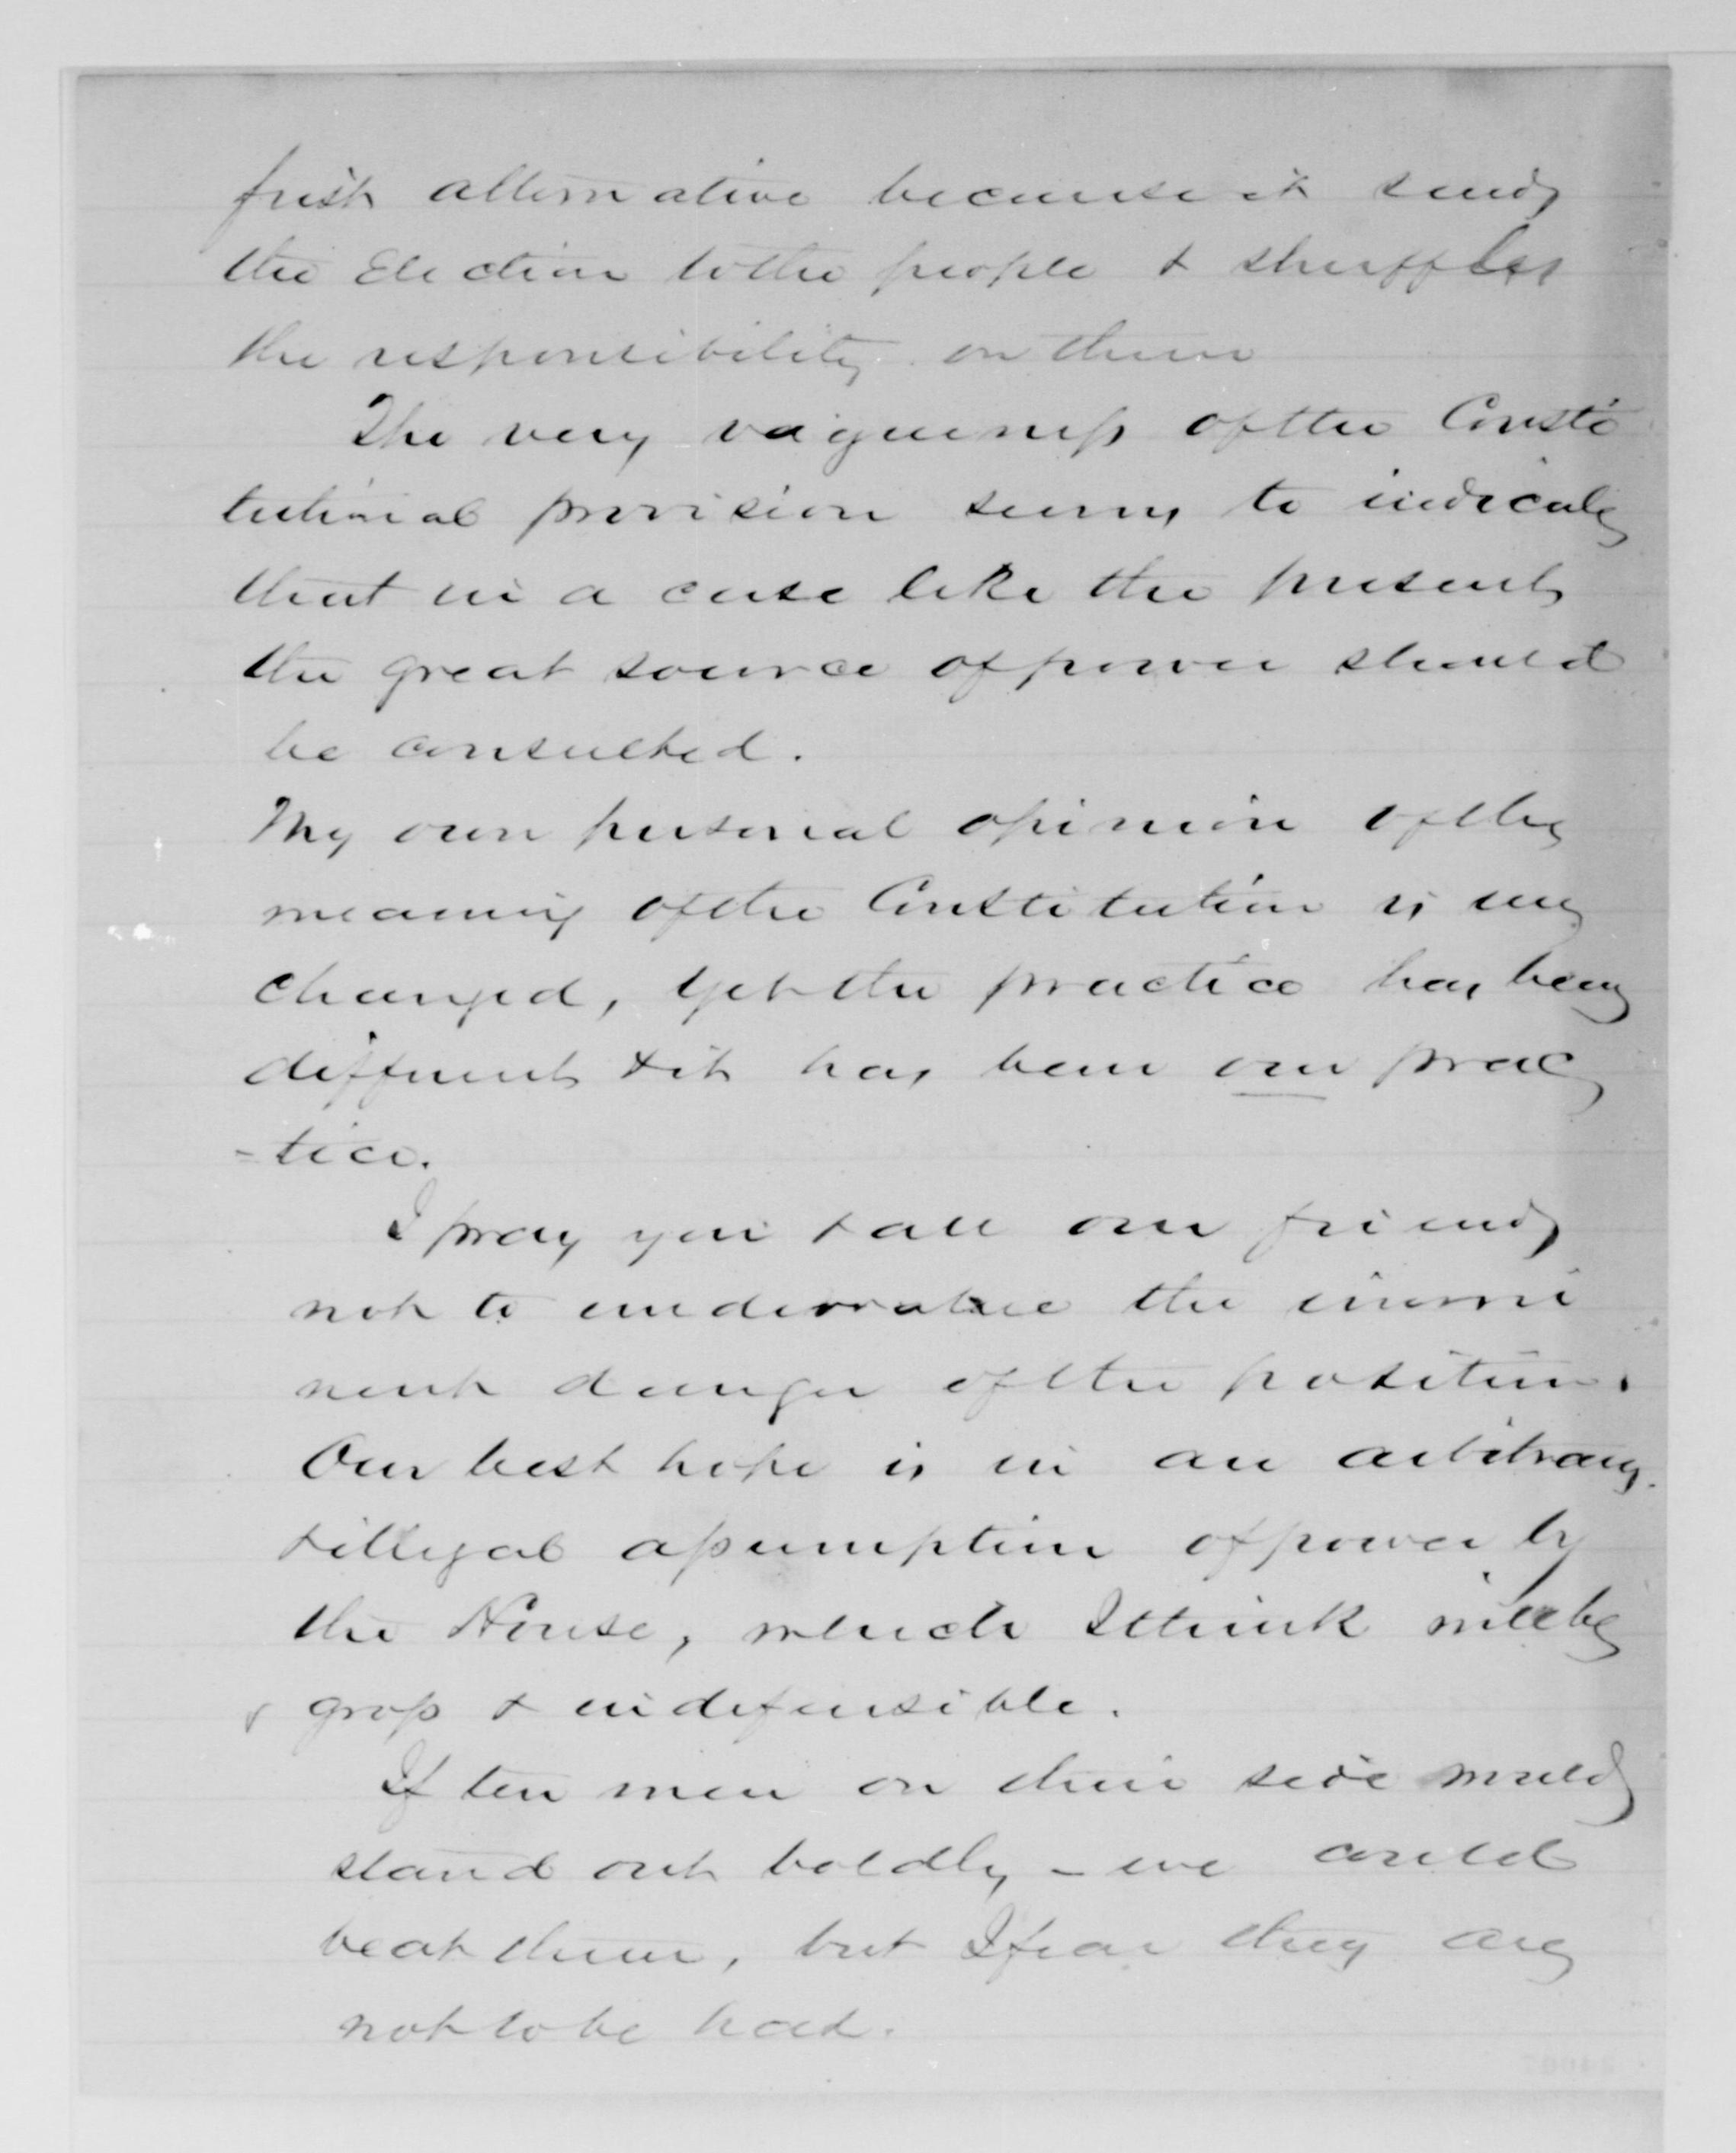 first alternative because it sends
the Election to the people & shuffles
the responsibility on them
The very vagueness of the Consti
tutional provision seems to indicate
that in a case like the present
the great source of power should
be consulted.
My own personal opinion of the
meaning of the Constitution is un
changed, yet the practice has been
different & it has been our prac
-tice.
I pray you & all our friends
not to undervalue the immi
nent danger of the position.
Our best hope is in an arbitrary
& illegal assumption of power by
the House, which I think will be
gross & indefensible.
If ten men on their side would
stand out boldly - we could
beat them, but I fear they are
not to be had.